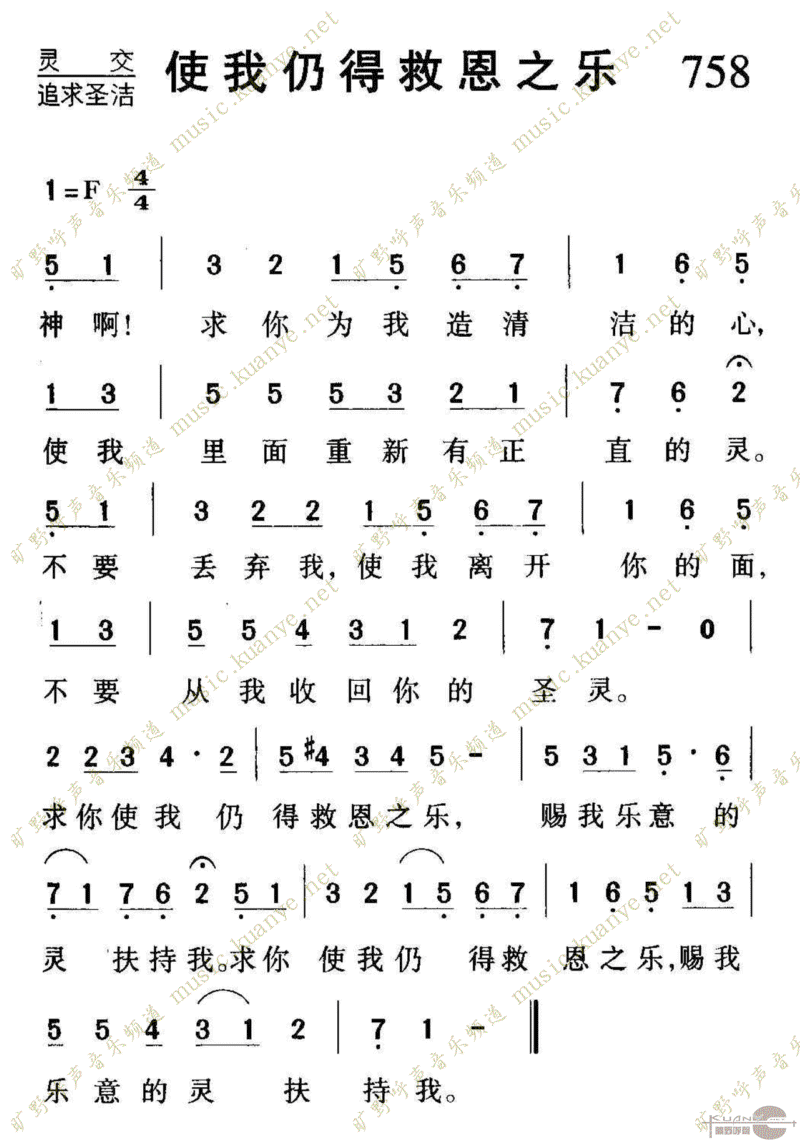 灵 交 使我仍得救恩之乐 758
追求圣洁
1=F 4/4
5 1 | 3 2 1 5 6 7 | 1 6 5
神啊! 求你为我造清 洁的心,
1 3 | 5 5 5 3 2 1 | 7 6 2
使我 里面重新有正 直的灵。
5 1 | 3 2 2 1 5 6 7 | 1 6 5
不要 丢弃我,使我离开 你的面,
1 3 | 5 5 4 3 1 2 | 7 1 - 0
不要 从我收回你的 圣灵。
2 2 3 4 · 2 | 5 #4 3 4 5 - | 5 3 1 5 · 6
求你使我 仍 得救恩之乐, 赐我乐意的
7 1 7 6 2 5 1 | 3 2 1 5 6 7 | 1 6 5 1 3
灵 扶持我。求你 使我仍 得救 恩之乐,赐我
5 5 4 3 1 2 | 7 1 - ‖
乐意的灵 扶 持我。
旷野呼声音乐频道 music.kuanye.net
KUANYE
旷野呼声